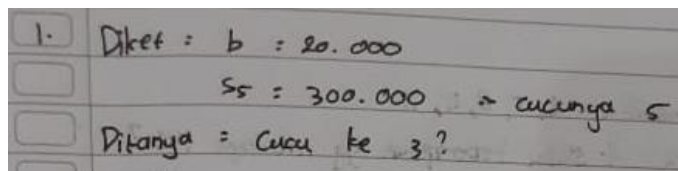 1. Diket : b : 20.000
S5 : 300.000 ~ cucunya 5
Ditanya : Cucu ke 3?